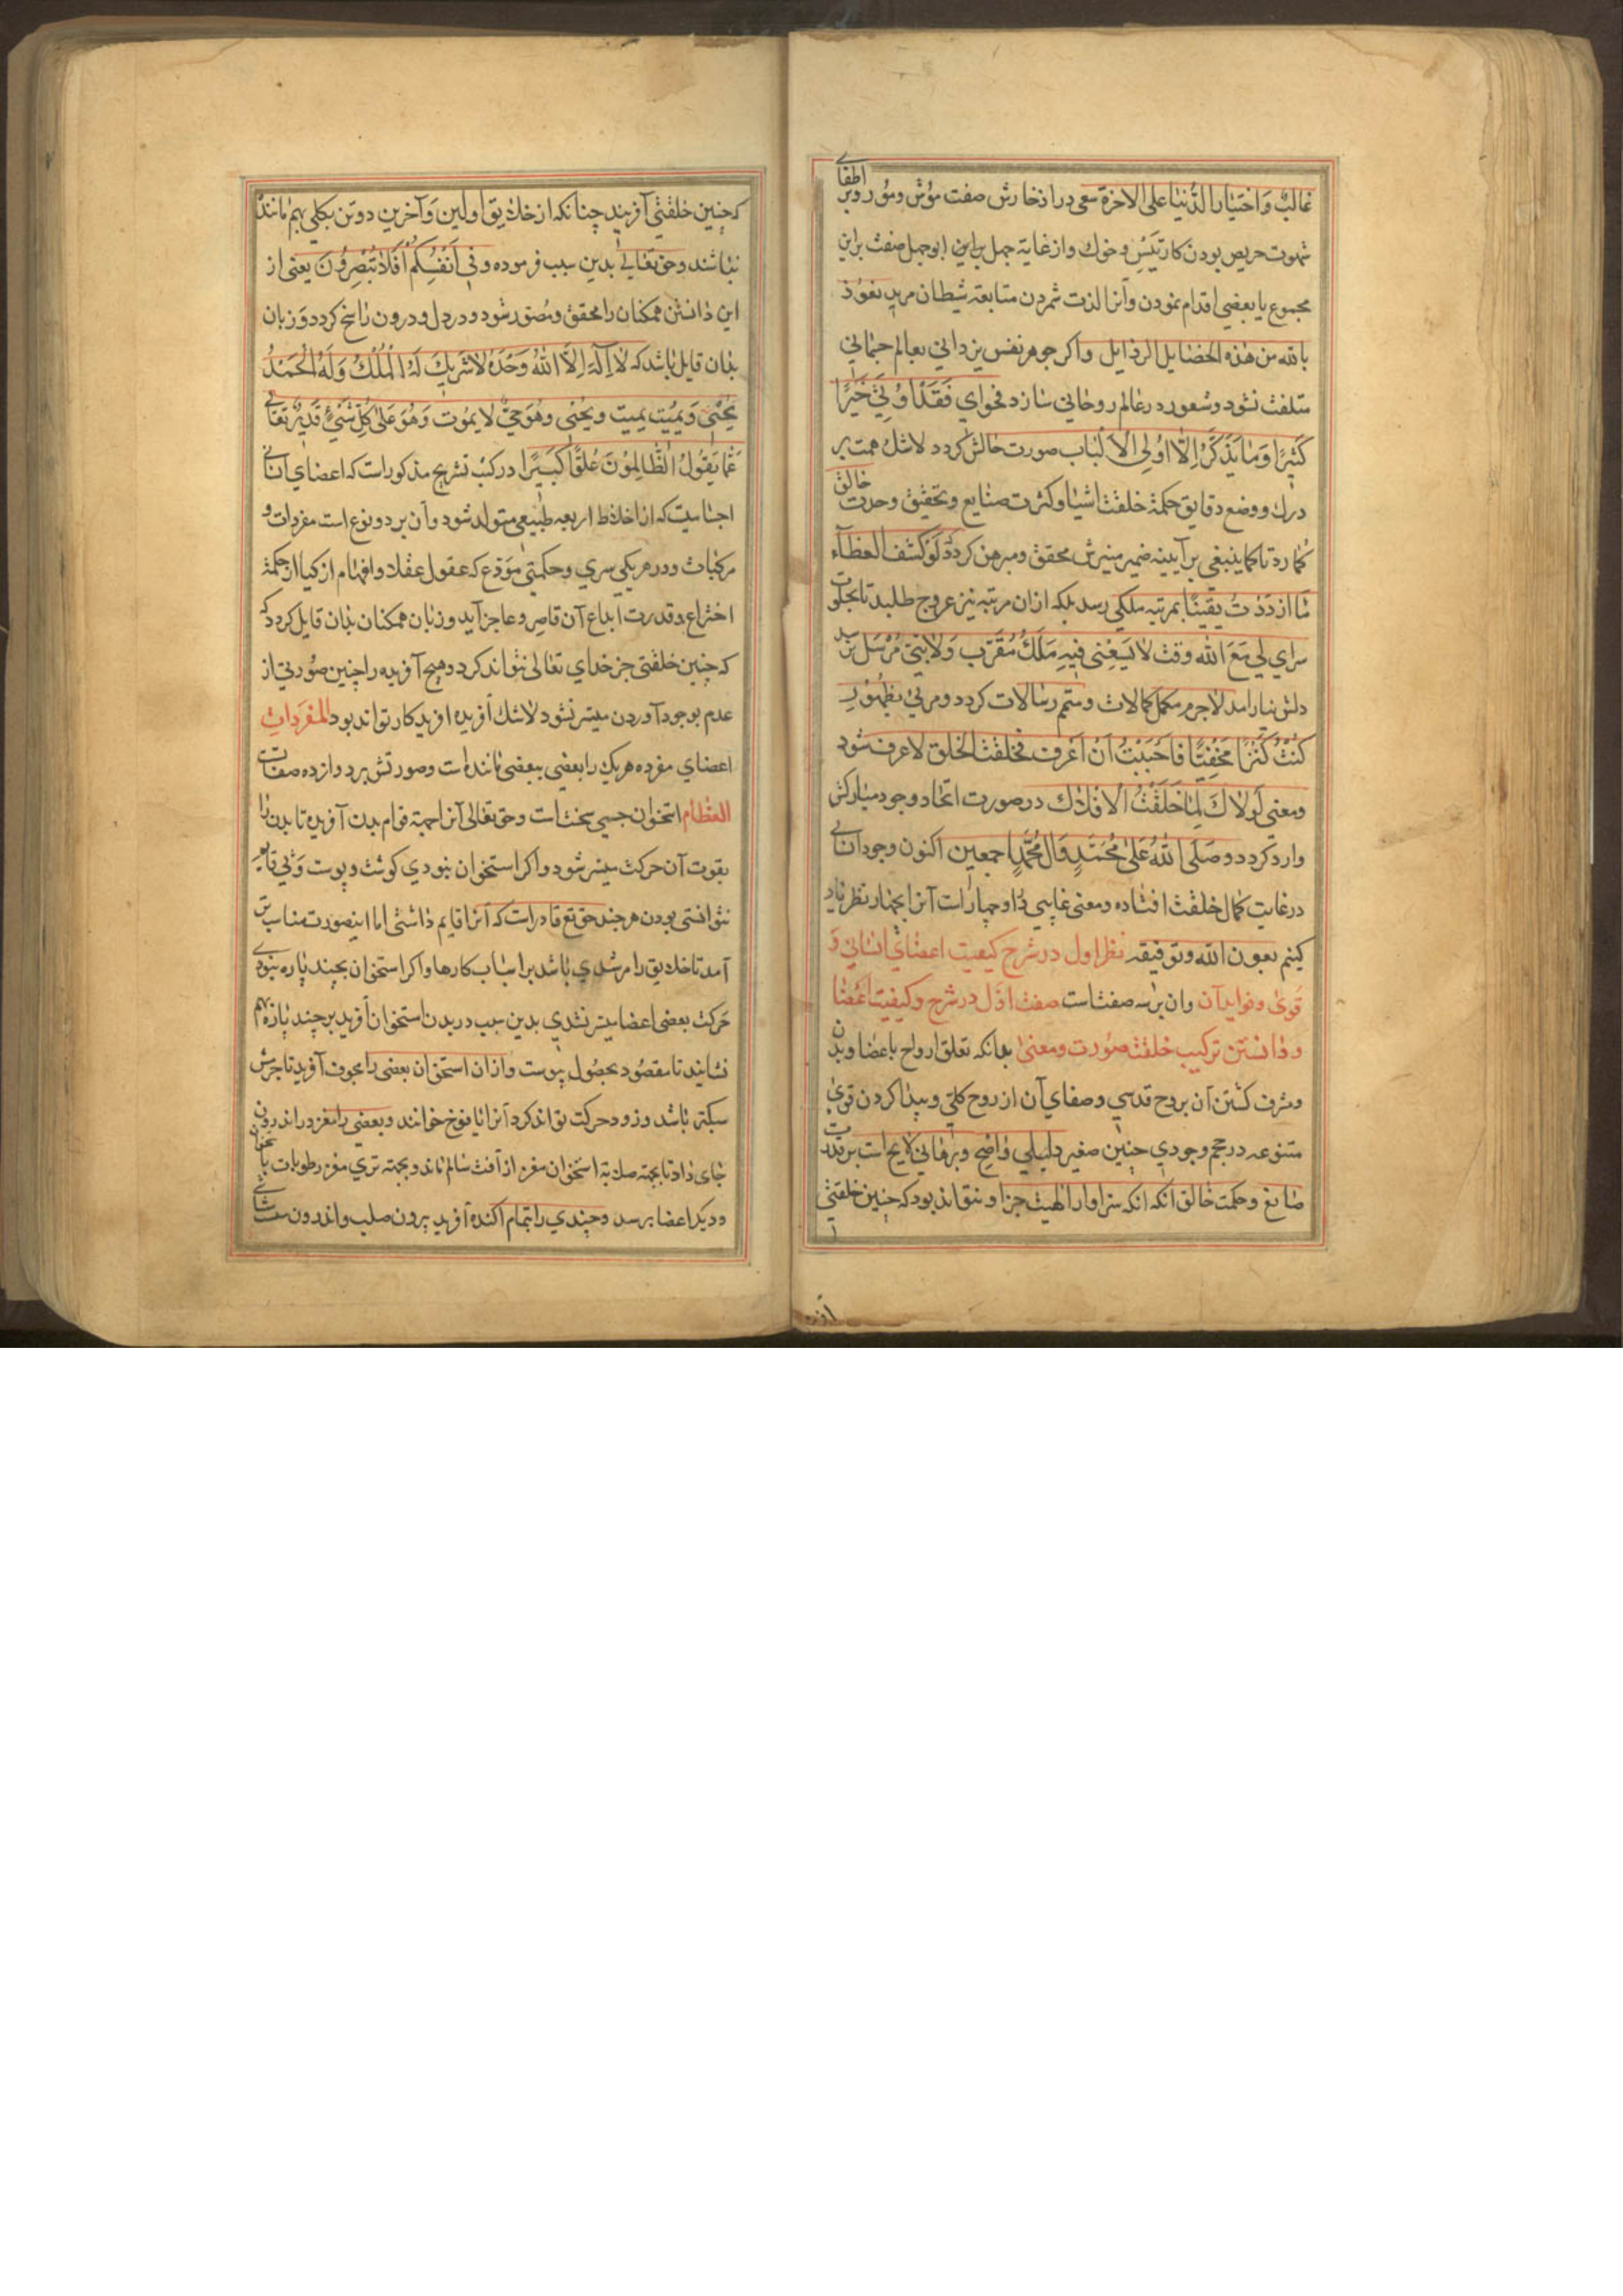 غالبٌ وَاختیار الدُّنیا علی الاخرة سعی دراز خارش صفت موُش ومُور و بر اطفای
شهوت حریص بودن کار تَیس و خوك واز غایة جهل براین ابوجهل صفت براین
مجموع یا بعضی اقدام نمودن وآنرا لذت شمردن متابعة شیطان مرید نعوُذ
بالله من هٰذه الخصایل الرذایل واکر جوهر نفس یزدانی بعالم جسمانی
متلفت نشود وشعور در عالم روحانی سازد فحوای فَقَدْ اُوتِیَ خَیْراً
کَثیراً وَمَا یَذَّکَّرُ اِلّٰا اوُلِی الْاَلْبٰاب صورت حالش کردد لاشك همت بر
درك ووضع دقایق حکمة خلقت اشیا وکثرت صنایع وتحقیق وحدت خالق
کمارد تا کما ینبغی بر آیینه ضمیر منیرش محقق ومبرهن کردد لَوْ کُشف الغطآء
مَا ازدَدتُ یقینًا بمرتبه ملکی رسد بلکه ازان مرتبه نیز عروج طلبد تا بخلوت
سرای لی مَعَ الله وقت لا یَسَعُنی فیهِ مَلَكٌ مُقَرَّب وَلا نَبیّ مُرْسَل نرسد
دلش نیارامد لاجرم مکمل کمالات ومتمم رسالات کردد ومربی بظهور
کُنْتُ کَنْزاً مَخْفِیًّا فَاَحْبَبْتُ اَنْ اُعْرَف فخلقت الخلق لاعرف شود
ومعنی لَولٰاكَ لَمٰا خَلَقْتُ الْاَفلاك در صورت اتحاد وجود مبارکش
وارد کردد وصَلَّی اللهُ عَلٰی مُحَمَّدٍ وَآلِ مُحَمَّدٍ اجمعین اکنون وجود انسانی
در غایت کمال خلقت افتاده ومعنی غایبی در او چهار است آنرا بچهار نظر یاد
کنیم بعون الله وتوفیقه نظر اول در شرح کیفیت اعضای انسانی وَ
قوی وفواید آن وان بر سه صفت است صفت اوّل در شرح وکیفیت اعضا
ودانستن ترکیب خلقت صُورت ومعنی بدانکه تعلق ارواح باعضا وبدن
ومشرف کشتن آن بروح قدسی وصفای آن از روح کلّی وپیدا کردن قوی
متنوعه در حجم وجودی چنین صغیر دلیلی واضح وبرهانی لایح است بر قدرت
صانع وحکمت خالق آنکه انکه سزاوار الهیت جز او نتواند بود که چنین خلقتی
آفرد
که چنین خلقتی آفریند چنانکه از خلایق اولین وَآخرین دو تن بکلی بهم مانند
نباشند وحق تعالی بدین سبب فرموده وفی اَنْفُسِکُمْ اَفَلٰا تُبْصِرُونَ یعنی از
این دانستن همکنان را محقق ومُصَوّر شود ودر دل ودرون راسخ کردد وَزبان
بدان قایل باشد که لٰا اِلٰهَ اِلَّا اللهُ وَحْدَهُ لٰا شَریكَ لَهُ الْمُلْكُ وَلَهُ الْحَمْدُ
یُحْیی وَیُمیتُ یمیت ویُحْیی وهُوَ حیٌّ لا یموُت وَهُوَ عَلیٰ کُلِّ شَیْءٍ قَدیرٌ تَعٰالی
عَمّٰا یَقُولُ الظّٰالِمُونَ عُلوًّا کَبیراً در کتب تشریح مذکور است که اعضای انسانی
اجسامیست که از اخلاط اربعه طبیعی متولد شود وآن بر دو نوع است مفردات و
مرکبات ودر هر یکی سری وحکمتی مُوَدّع که عقول عقلا وافهام ازکیا از حکمة
اختراع وقدرت ابداع آن قاصر وعاجز آید وزبان همکنان بدان قایل کردد که
که چنین خلقتی جز خدای تعالی نتواند کرد وهیچ آفریده را چنین صُورتی از
عدم بوجود آوردن میسر نشود لاشك آفریده افریدکار نتواند بود المفرَدات
اعضای مفرده هر یك را بعضی ببعضی ماننده است وصورتش بر دوازده صفات است
العظام استخوان جسمی سخت است وحق تعالی آنرا جهة قوام بدن آفریده تا بدن را
بقوت آن حرکت میسر شود واکر استخوان نبودی کوشت وپوست وَپی قایم
نتوانستی بودن هر چند حق تع قادر است که آنرا قایم داشتی اما اینصورت مناسب تر
آمد تا خلایق را مرشدی باشد بر اسباب کارها واکر استخوان بچند پاره نبودی
حَرکت بعضی اعضا میسر نشدی بدین سبب در بدن استخوان آفرید بر چند پاره بهم
نشانید تا مقصُود بحصُول پیوست وازان استخوان بعضی را مجوف آفرید تا جرمش
سبکتر باشد وزود حرکت تواند کرد آنرا یافوخ خوانند وبعضی را مغز در اندرون
جای داد تا بجهة صلابة استخوان مغز از آفت سالم ماند وبجهة تری مغز رطوبات باستخوان
ودیکر اعضا برسد وچندی را بتمام آکنده آفرید برون صلب واندرون